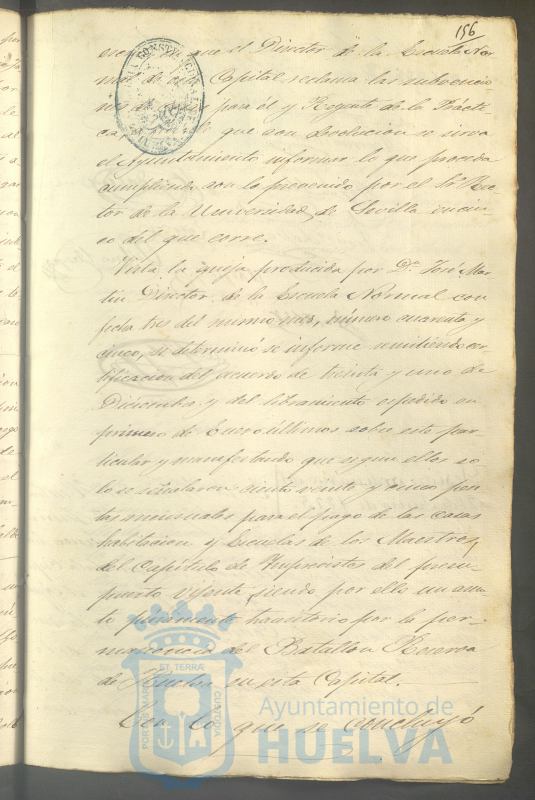 156
que el Director de la Escuela Nor
mal de esta Capital reclama las subvencio
nes de para él y Regente de la Prácti
ca que con devolucion se sirva
el Ayuntamiento informar lo que proceda
cumpliendo con lo prevenido por el Sr. Rec
tor de la Universidad de Sevilla en cin
co del que corre.
Vista la queja producida por Dn. José Mar
tin Director de la Escuela Normal con
fecha tres del mismo mes, número cuarenta y
cinco, se determinó se informe remitiendo cer
tificacion del acuerdo de treinta y uno de
Diciembre y del libramiento expedido en
primero de Enero últimos sobre este par
ticular y manifestando que segun ellos so
lo se señalaron ciento veinte y cinco pese
tas mensuales para el pago de las casas
habitacion y Escuelas de los Maestros
del Capitulo de Imprevistos del presu
puesto vigente, siendo por ello un asun
to puramente transitorio por la per
manencia del Batallon Reserva
de Huelva en esta Capital.
Con lo que se concluyó
PORTUS MARIS ET TERRÆ CUSTODIA
Ayuntamiento de
HUELVA